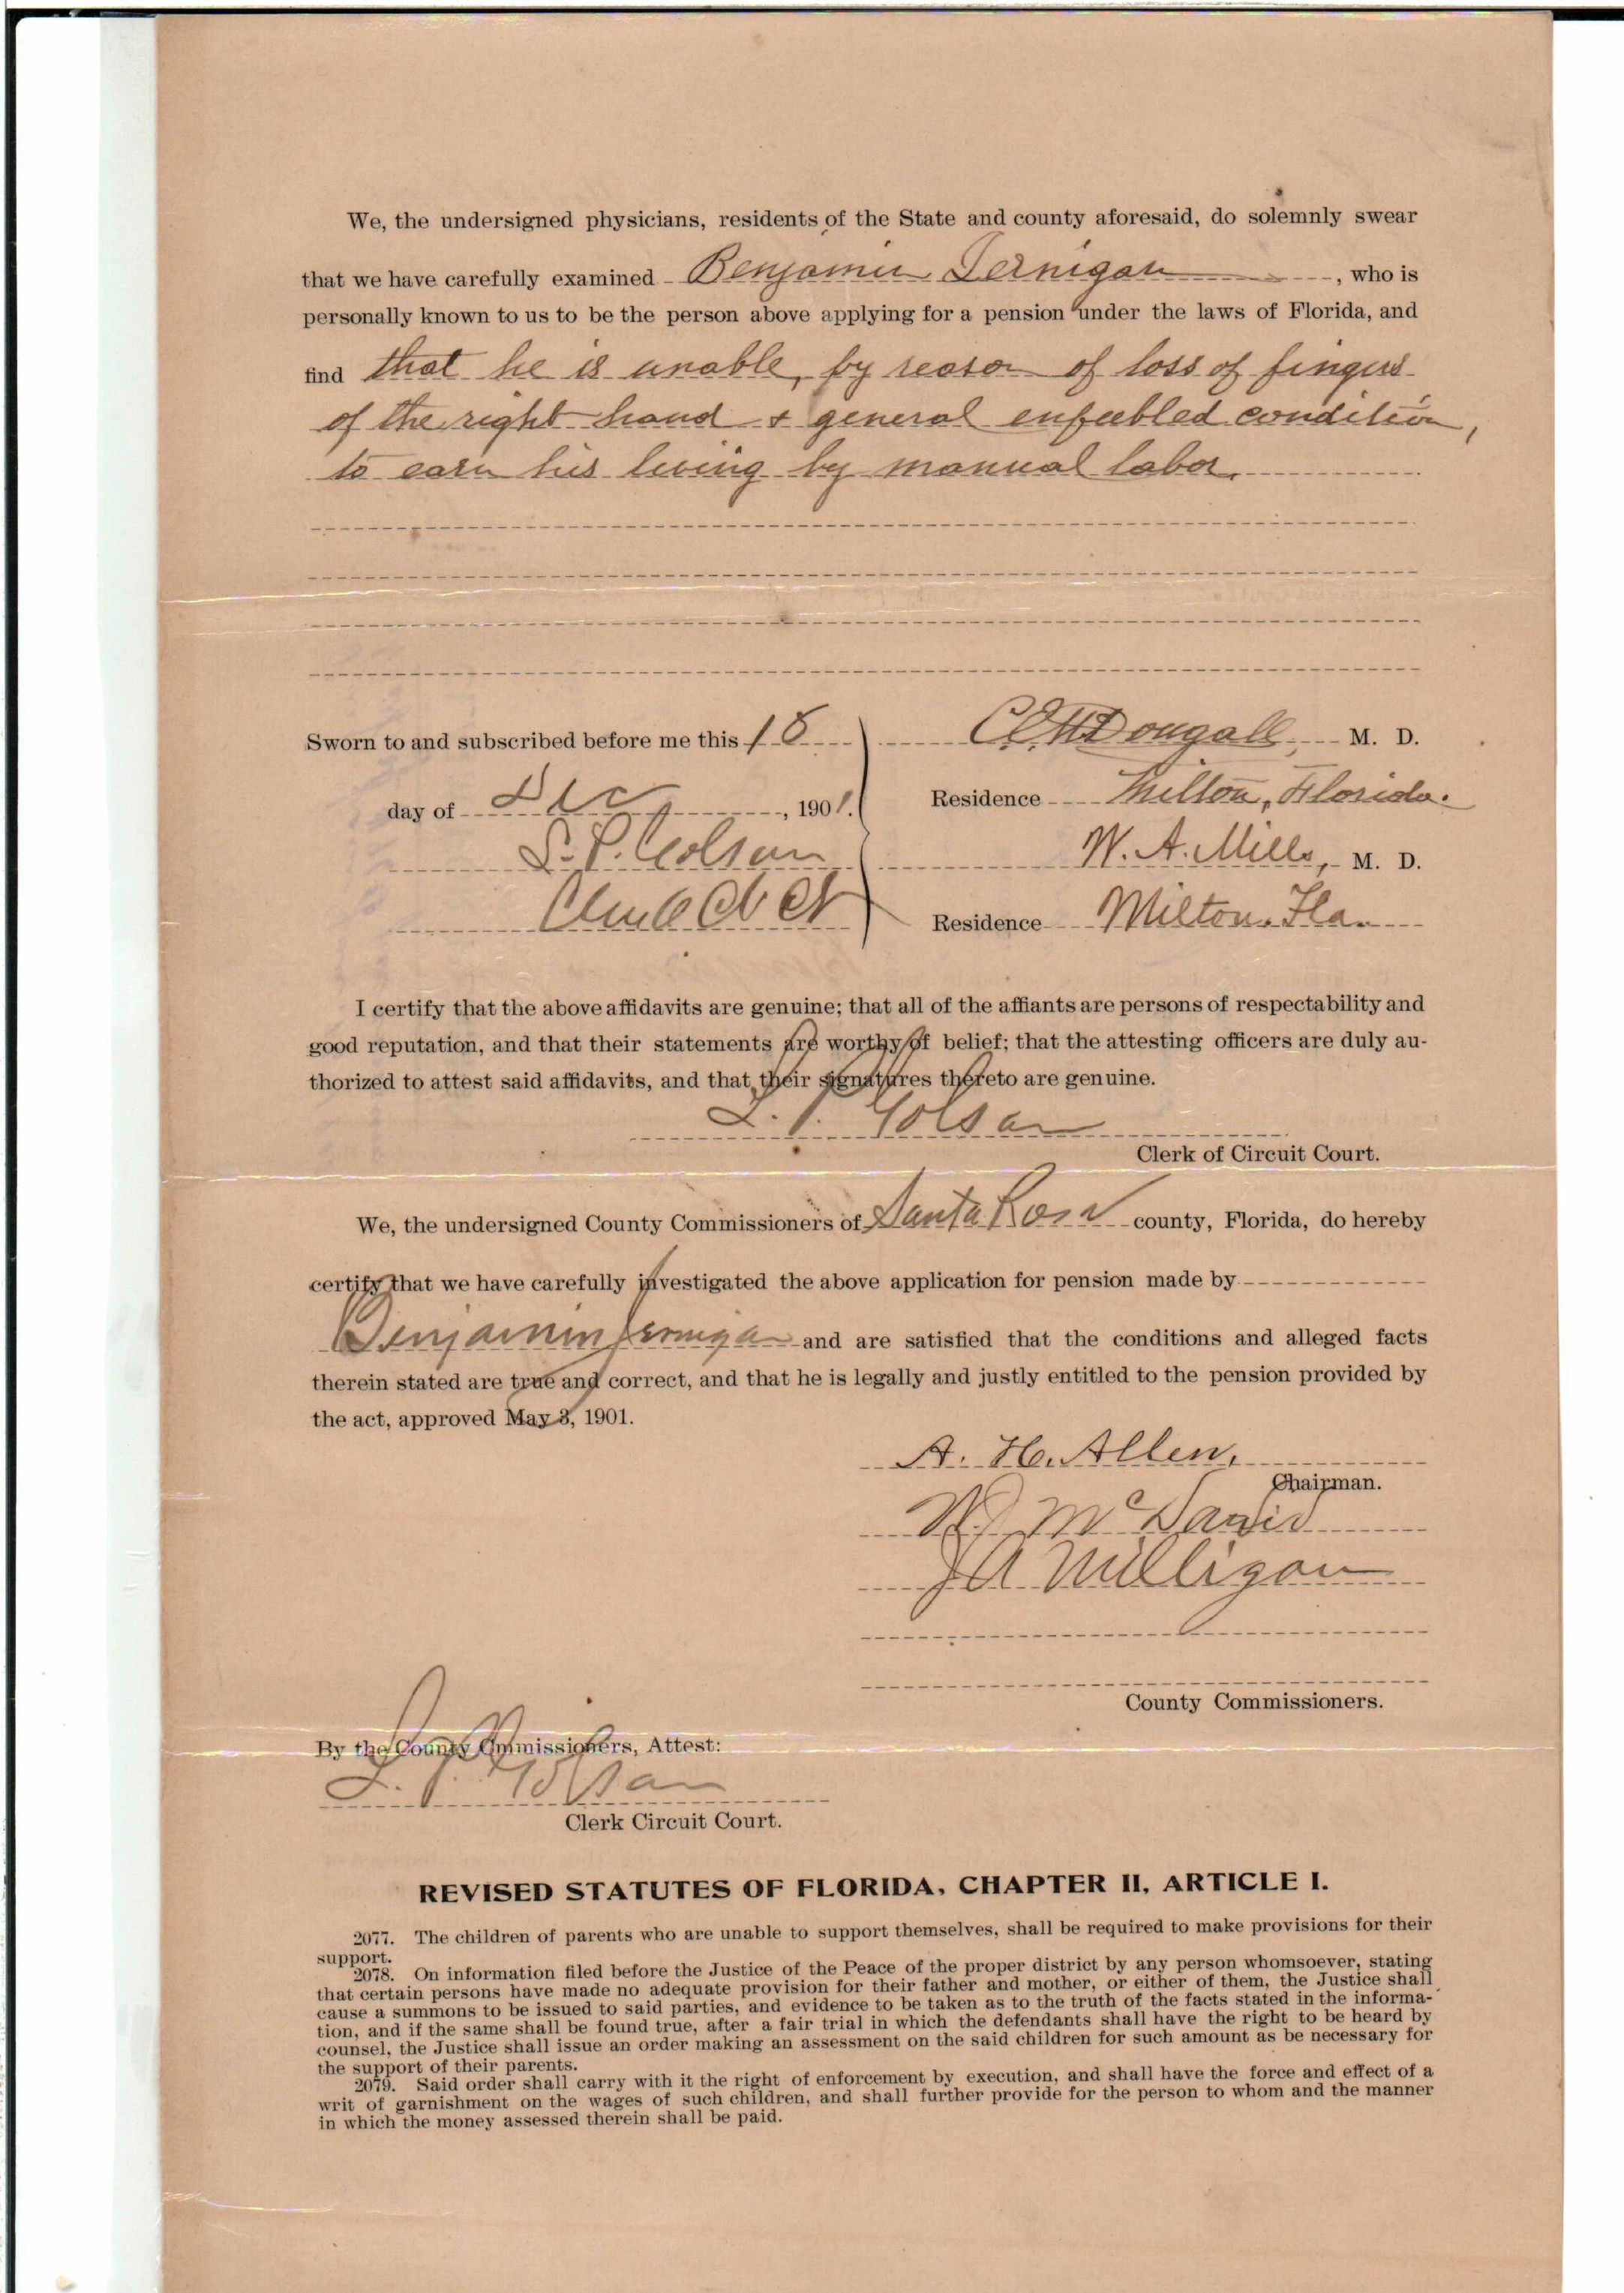 We, the undersigned physicians, residents of the State and county aforesaid, do solemnly swear
that we have carefully examined Benjamin Jernigan, who is
personally known to us to be the person above applying for a pension under the laws of Florida, and
find that he is unable, by reason of loss of fingers
of the right hand & general enfeebled condition,
to earn his living by manual labor.
Sworn to and subscribed before me this 18
day of Dec, 1901.
McDougall, M. D.
Residence Milton, Florida.
Golson
W. A. Mills, M. D.
Clerk
Residence Milton, Fla.
I certify that the above affidavits are genuine; that all of the affiants are persons of respectability and
good reputation, and that their statements are worthy of belief; that the attesting officers are duly au-
thorized to attest said affidavits, and that their signatures thereto are genuine.
Golson
Clerk of Circuit Court.
We, the undersigned County Commissioners of Santa Rosa county, Florida, do hereby
certify that we have carefully investigated the above application for pension made by
Benjamin Jernigan and are satisfied that the conditions and alleged facts
therein stated are true and correct, and that he is legally and justly entitled to the pension provided by
the act, approved May 3, 1901.
A. H. Allen,
Chairman.
McDavid
J A Milligan
County Commissioners.
By the County Commissioners, Attest:
Golson
Clerk Circuit Court.
REVISED STATUTES OF FLORIDA, CHAPTER II, ARTICLE I.
2077. The children of parents who are unable to support themselves, shall be required to make provisions for their
support.
2078. On information filed before the Justice of the Peace of the proper district by any person whomsoever, stating
that certain persons have made no adequate provision for their father and mother, or either of them, the Justice shall
cause a summons to be issued to said parties, and evidence to be taken as to the truth of the facts stated in the informa-
tion, and if the same shall be found true, after a fair trial in which the defendants shall have the right to be heard by
counsel, the Justice shall issue an order making an assessment on the said children for such amount as be necessary for
the support of their parents.
2079. Said order shall carry with it the right of enforcement by execution, and shall have the force and effect of a
writ of garnishment on the wages of such children, and shall further provide for the person to whom and the manner
in which the money assessed therein shall be paid.